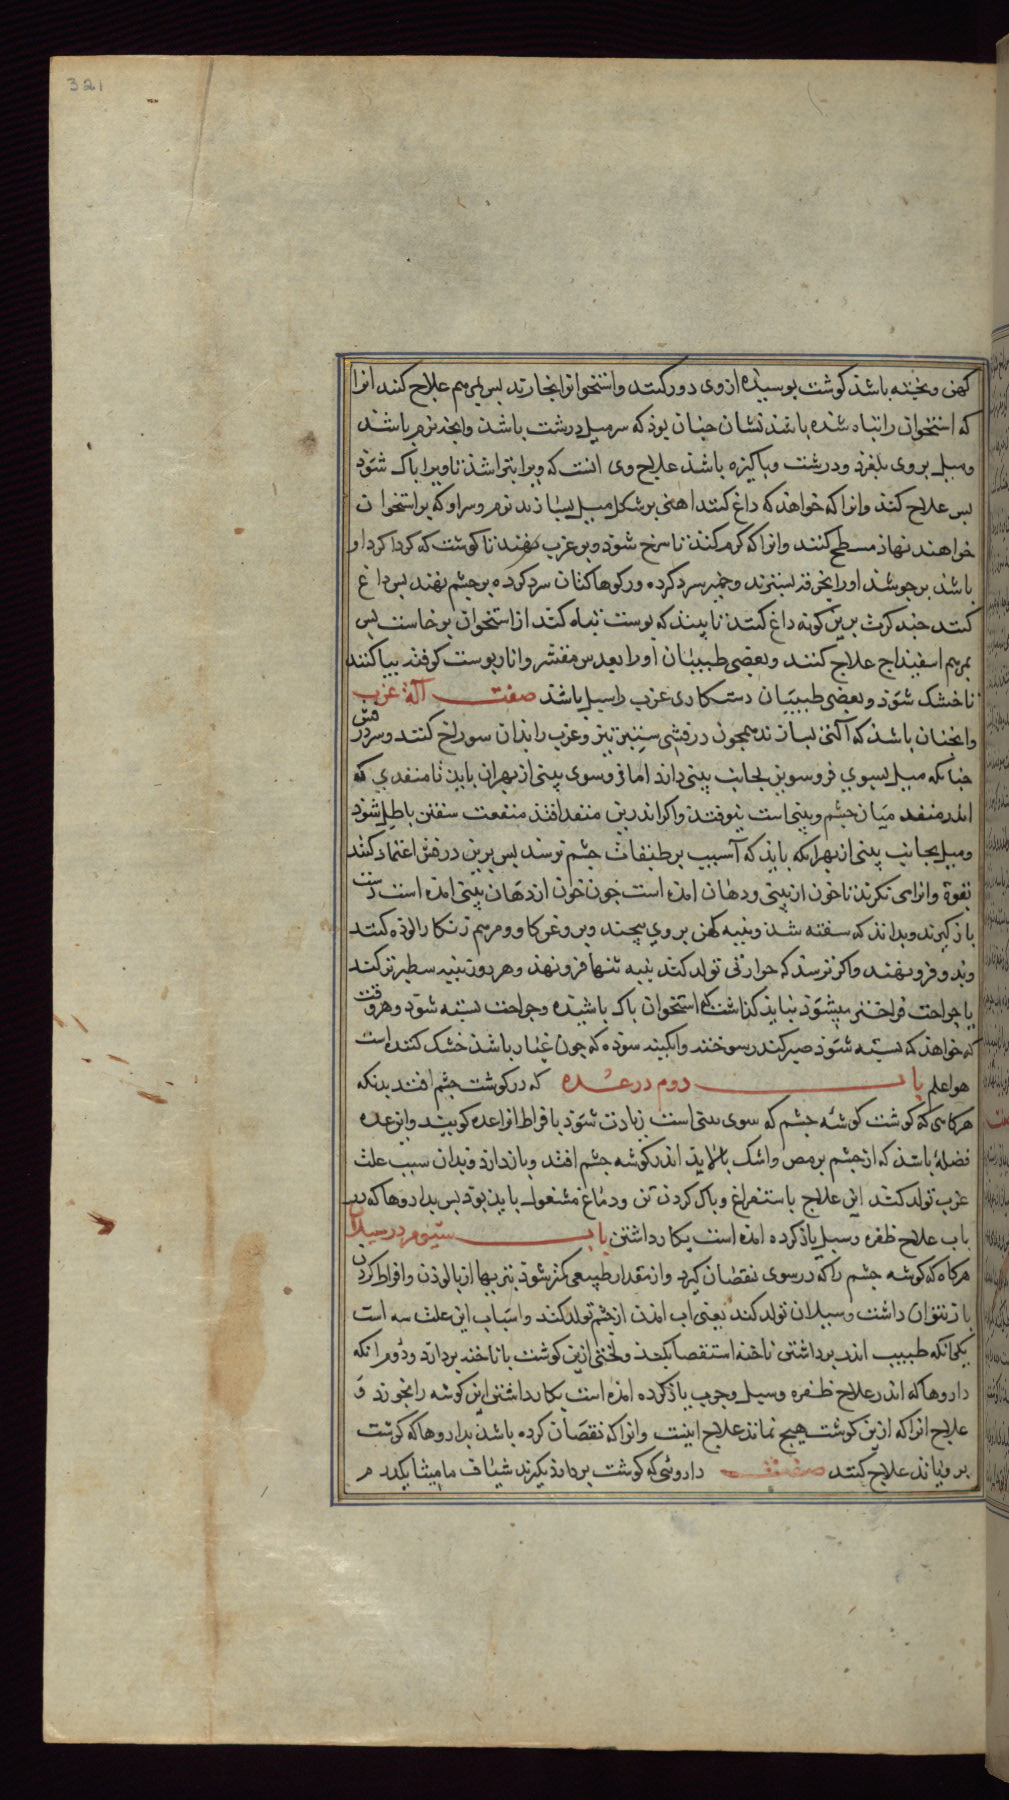 321
کهن و پخته باشد کوشت بوسیده از وی دور کنند و استخوان او بخارند بس بمرهم علاج کنند انرا
که استخوان را تباه شده باشد نشان جنان بوذ که سر میل درشت باشد وانجه نرم باشد
ومیل بر وی بلغزد و درشت و باکیزه باشد علاج وی انست که ویرا بتراشند تا ویرا باک شوذ
بس علاج کنند وانرا که خواهند که داغ کنند اهنی بر شکل میل بسازند نرم وسر او که بر استخوان
خواهند نهاذ مسطح کنند وانرا که کرم کنند تا سرخ شوذ و بر غرب نهند تا کوشت که کرداکرد او
باشد بر جوشد او را بخرقه بسترند وخمیر سرد کرده ورکوها کتان سرد کرده بر جشم نهند بس داغ
کنند جند کرت برین کونه داغ کنند تا بینند که بوست تباه کند از استخوان برخاست بس
بمرهم اسفیداج علاج کنند وبعضی طبیبان او را بعدس مقشر وانار بوست کوفته بیاکنند
تا خشک شوذ وبعضی طبیبان دستکاری غرب را سبل باشد صفت آلة غرب
وانجنان باشد که آلتی بسازند همجون درفشی تیز وغرب را بدان سوراخ کنند وسر درفش
جنانکه میل بسوی فروسو بن بجانب بینی دارد اما فروسوی بینی از بهر ان باید تا منفدی که
اندر منفد میان جشم وبینی است بنوفتد واکر اندرین منفد افتد منفعت سفتن باطل شوذ
ومیل بجانب بینی از بهر انکه بایذ که آسیب بر طبقات جشم نرسد بس برین درفش اعتماد کنند
بقوة وانرا می نکرند تا خون از بینی ودهان امده است جون خون از دهان بینی امده است دست
باز کیرند وبدانند که سفته شد وبنبه کهن بر وی بیجند وبروغن کاو ومرهم زنکار الوده کنند
وبدو فرو نهند واکر نرسد که حرارتی تولد کند بنبه تنها فرو نهند وهر روز بنبه سطبرتر کند
یا جراحت فراختر میشوذ نباید کذاشت که استخوان باک باشیذه وجراحت بسته شوذ وهر وقت
که خواهذ که بسته شوذ صبر کند سوخته وانکبین سوده که جون غبار باشد خشک کننده است
هو اعلم باب دوم در غده که در کوشت جشم افتد بدنکه
هرکاهی که کوشت کوشه جشم که سوی بینی است زیادت شوذ بافراط انرا غده کویند واین غده
فضلة باشد که از جشم برمص واشک بالاید اندر کوشه جشم افتد وباز دارد وبدان سبب علت
غرب تولد کند این علاج باستفراغ وباک کردن تن ودماغ مشغول باید بود بس بداروها که در
باب علاج ظفره وسبل یاذ کرده امده است بکار داشتن باب سیوم در سیلان
هرکاه که کوشه جشم را که در سوی نقصان کیرد واز مقدار طبیعی کمتر شوذ تریها از بالوذن وافراط کردن
باز نتوان داشت وسیلان تولد کند یعنی اب امدن از جشم تولد کند واسباب این علت سه است
یکی انکه طبیب اندر برداشتن ناخنه استقصا کند ولختی ازین کوشت با ناخنه بردارد ودوم انکه
داروها که اندر علاج ظفره وسبل وجرب یاذ کرده امده است بکار داشتن این کوشه را بخورد و
علاج انرا که ازین کوشت هیج نماند علاج اینست وانرا که نقصان کرده باشد بداروها که کوشت
برویاند علاج کنند صفت داروئی که کوشت بردارد بکیرند شیاف مامیثا یکدرم